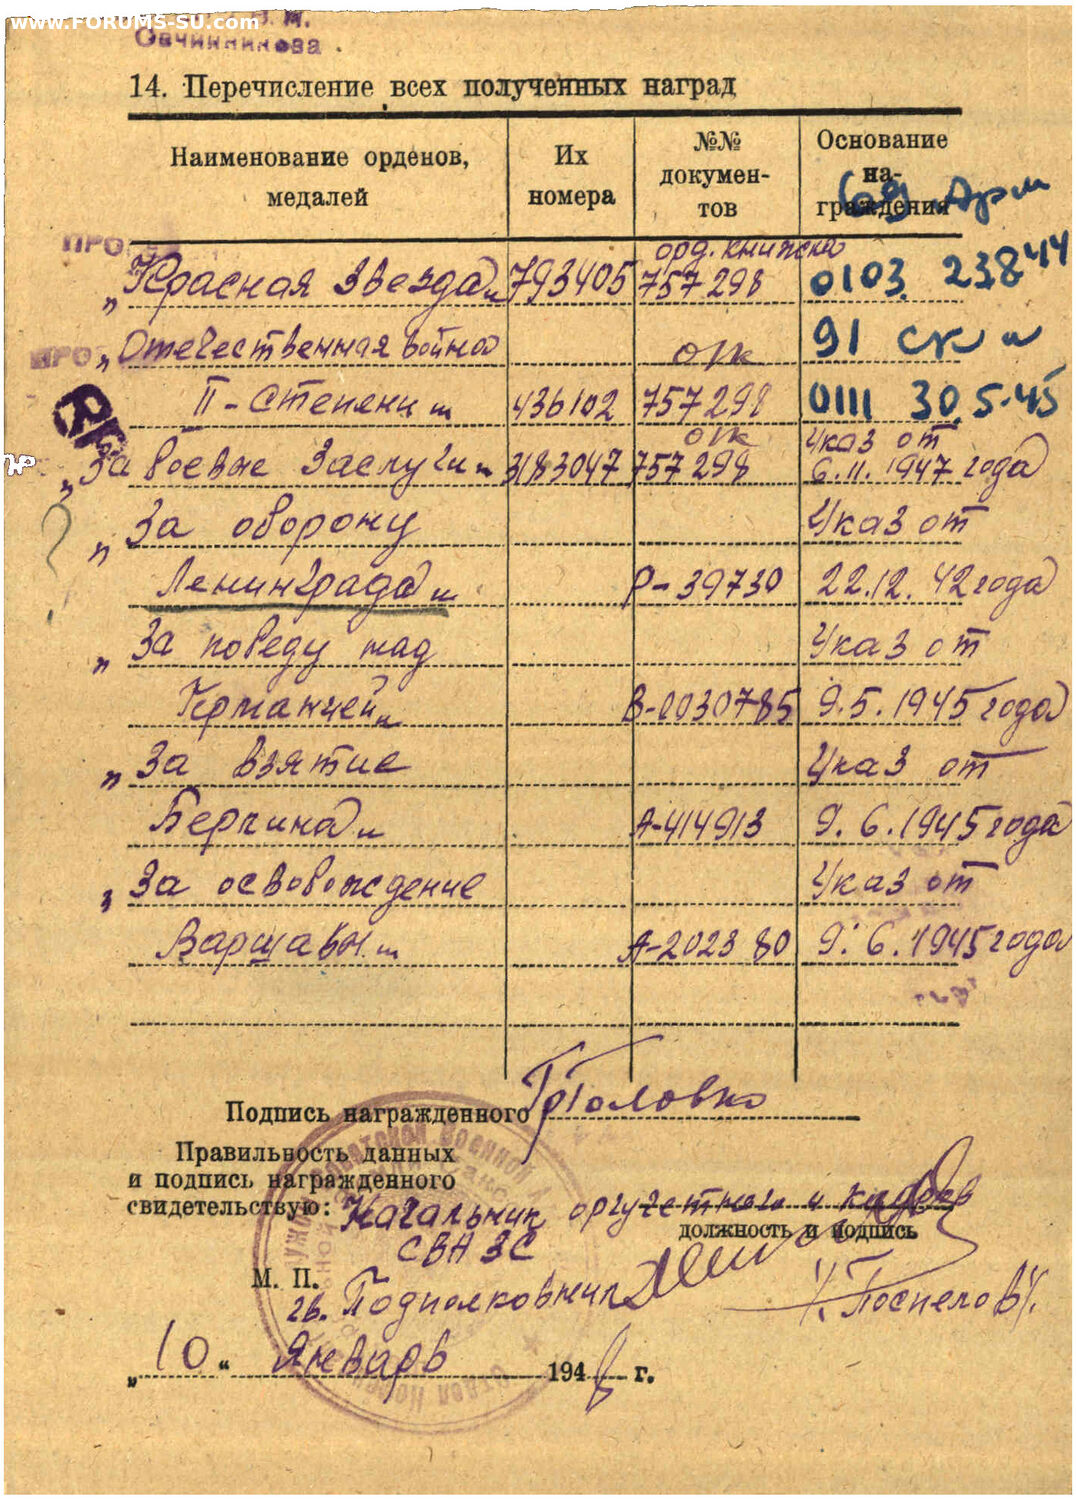 www.FORUMS-SU.com
Овчинникова
14. Перечисление всех полученных наград
Наименование орденов, медалей
Их номера
№№ докумен-тов
Основание на-граждения
69 Арм
орд. книжка
„Красная Звезда“ 793405 757298 0103. 238 44
„Отечественная война о/к 91 ск
II-степени“ 436102 757298 0111 30.5.45
о/к Указ от
„За боевые заслуги“ 3183047 757298 6.11.1947 года
„За оборону Указ от
Ленинграда“ Р-39730 22.12.42 года
„За победу над Указ от
Германией“ В-0030785 9.5.1945 года
„За взятие Указ от
Берлина“ А-414913 9.6.1945 года
„За освобождение Указ от
Варшавы“ А-202380 9.6.1945 года
Подпись награжденного Головко
Правильность данных
и подпись награжденного
свидетельствую: Начальник оргучетного и кадров
должность и подпись
СВА ЗС
М. П.
гв. Подполковник Поспелов
„10“ Январь 1948 г.